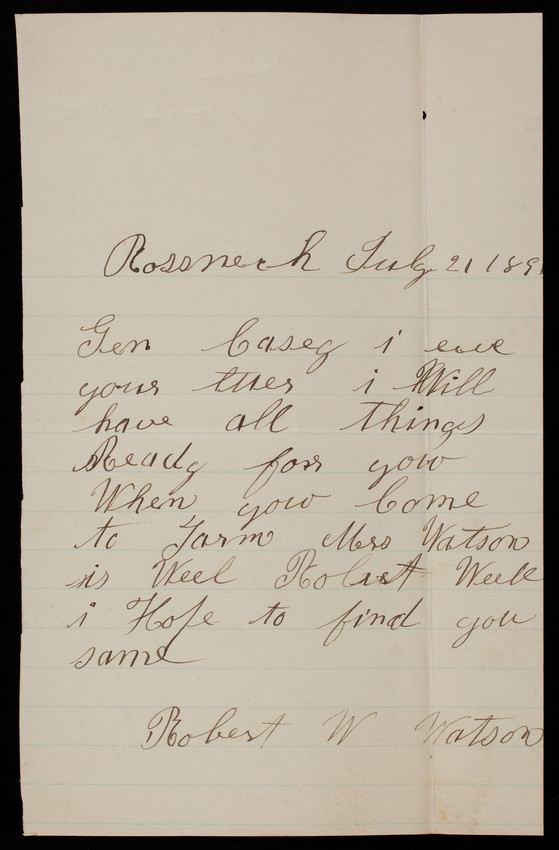 Rossneck July 21 1891
Gen Casey i
your i Will
have all things
Ready for yow
When yow Come
to Farm Mrs Watson
is Weel Robert Well
i Hope to find you
same
Robert W Watson